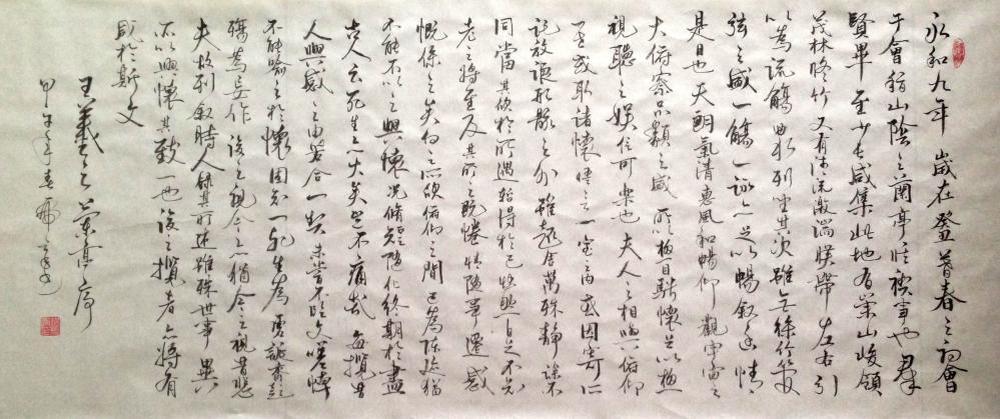 永和九年歲在癸暮春之初會
于會稽山陰之蘭亭修禊事也羣
賢畢至少長咸集此地有崇山峻領
茂林修竹又有清流激湍映帶左右引
以為流觴曲水列坐其次雖無絲竹管
弦之盛一觴一詠亦足以暢敘幽情
是日也天朗氣清惠風和暢仰觀宇宙之
大俯察品類之盛所以遊目騁懷足以極
視聽之娛信可樂也夫人之相與俯仰
一世或取諸懷悟言一室之內或因寄所
託放浪形骸之外雖趣舍萬殊靜躁不
同當其欣於所遇暫得於己快然自足不知
老之將至及其所之既倦情隨事遷感
慨係之矣向之所欣俯仰之間已為陳跡猶
不能不以之興懷況修短隨化終期於盡
古人云死生亦大矣豈不痛哉每攬昔
人興感之由若合一契未嘗不臨文嗟悼
不能喻之於懷固知一死生為虛誕齊彭
殤為妄作後之視今亦猶今之視昔悲
夫故列敘時人錄其所述雖殊世事異
所以興懷其致一也後之攬者亦將有
感於斯文
王羲之蘭亭序
甲午年春